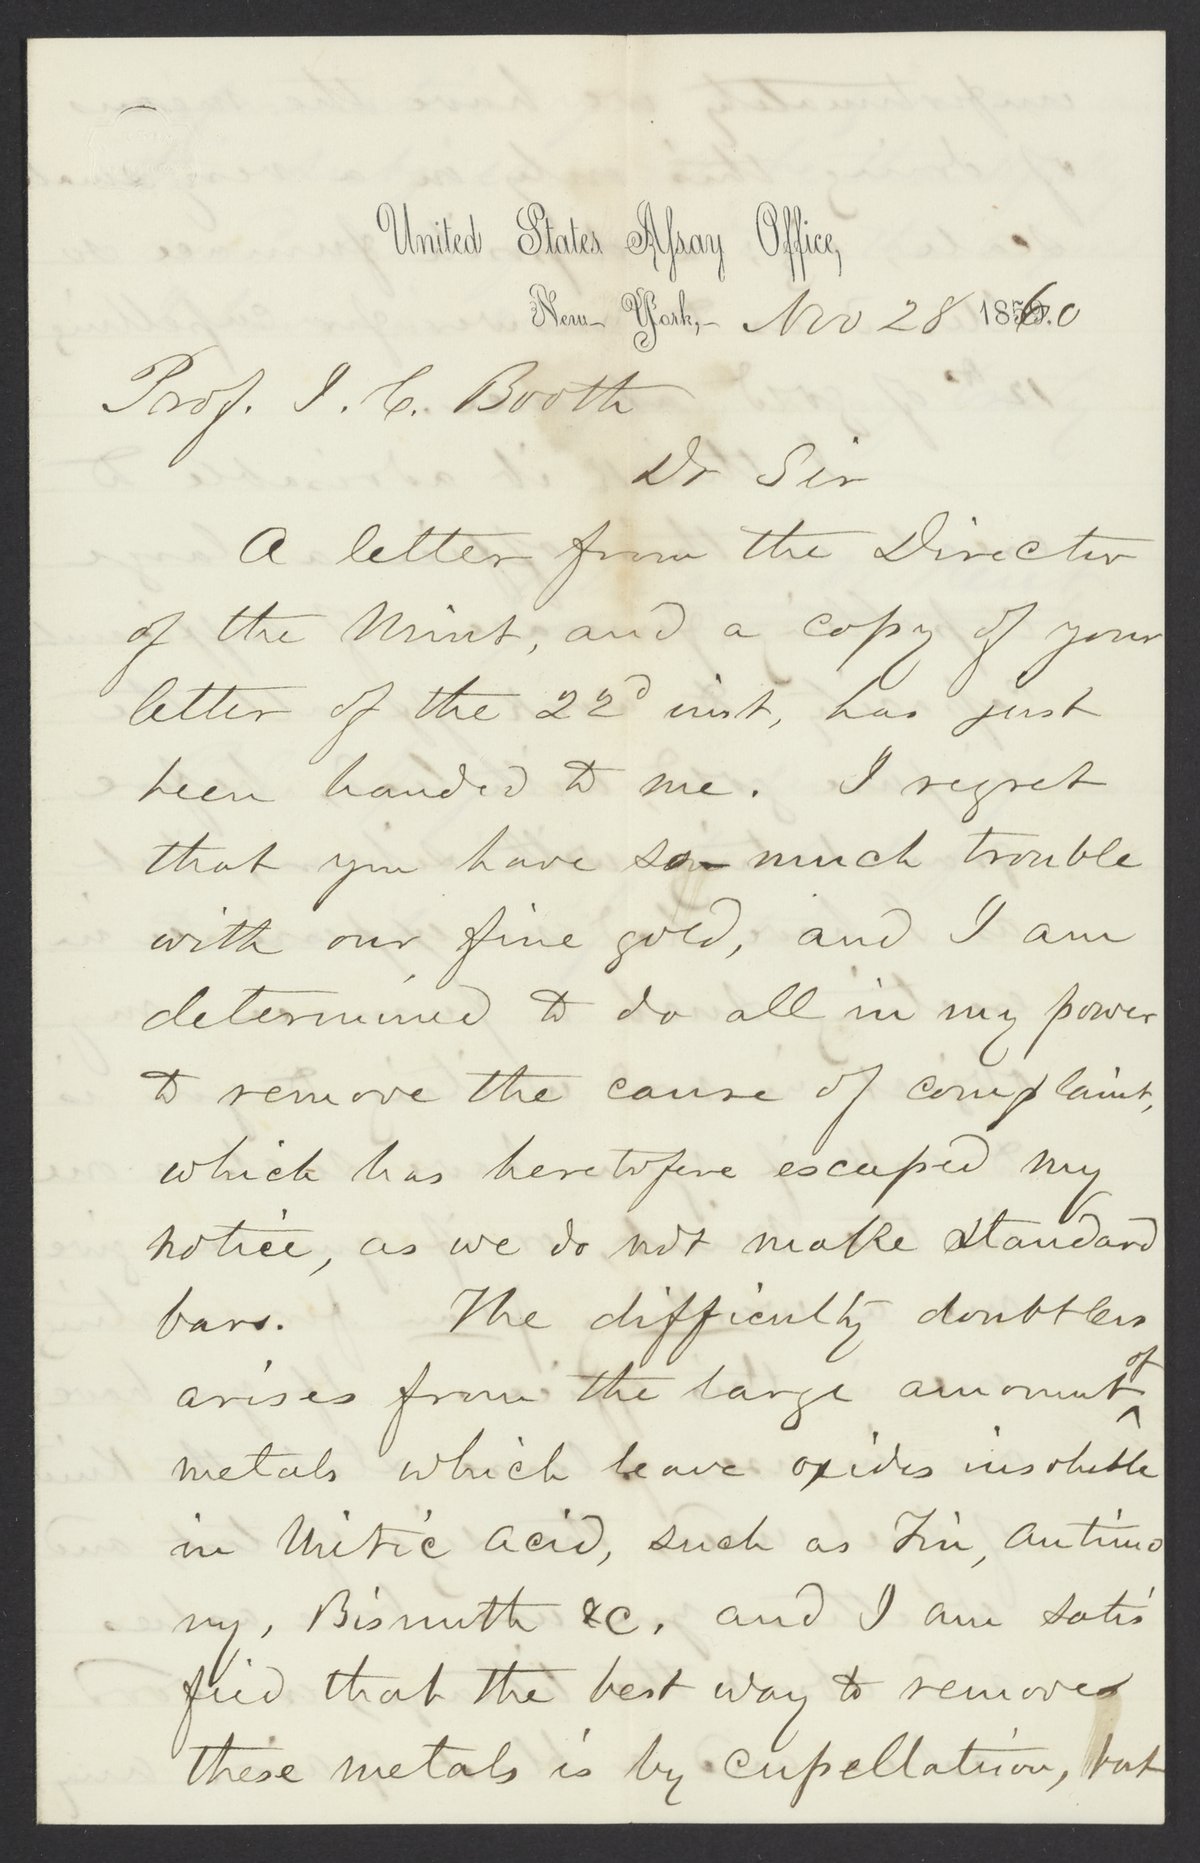 United States Assay Office,
New York, Nov 28 1860
Prof. J. C. Booth
Dr Sir
A letter from the Director
of the Mint, and a copy of your
letter of the 22d inst, has just
been handed to me. I regret
that you have so much trouble
with our fine gold, and I am
determined to do all in my power
to remove the cause of complaint,
which has heretofore escaped my
notice, as we do not make standard
bars. The difficulty doubtless
arises from the large amount of
metals which leave oxides insoluble
in Nitric acid, such as Tin, Antimo
ny, Bismuth &c. and I am satis
fied that the best way to remove
these metals is by cupellation, but